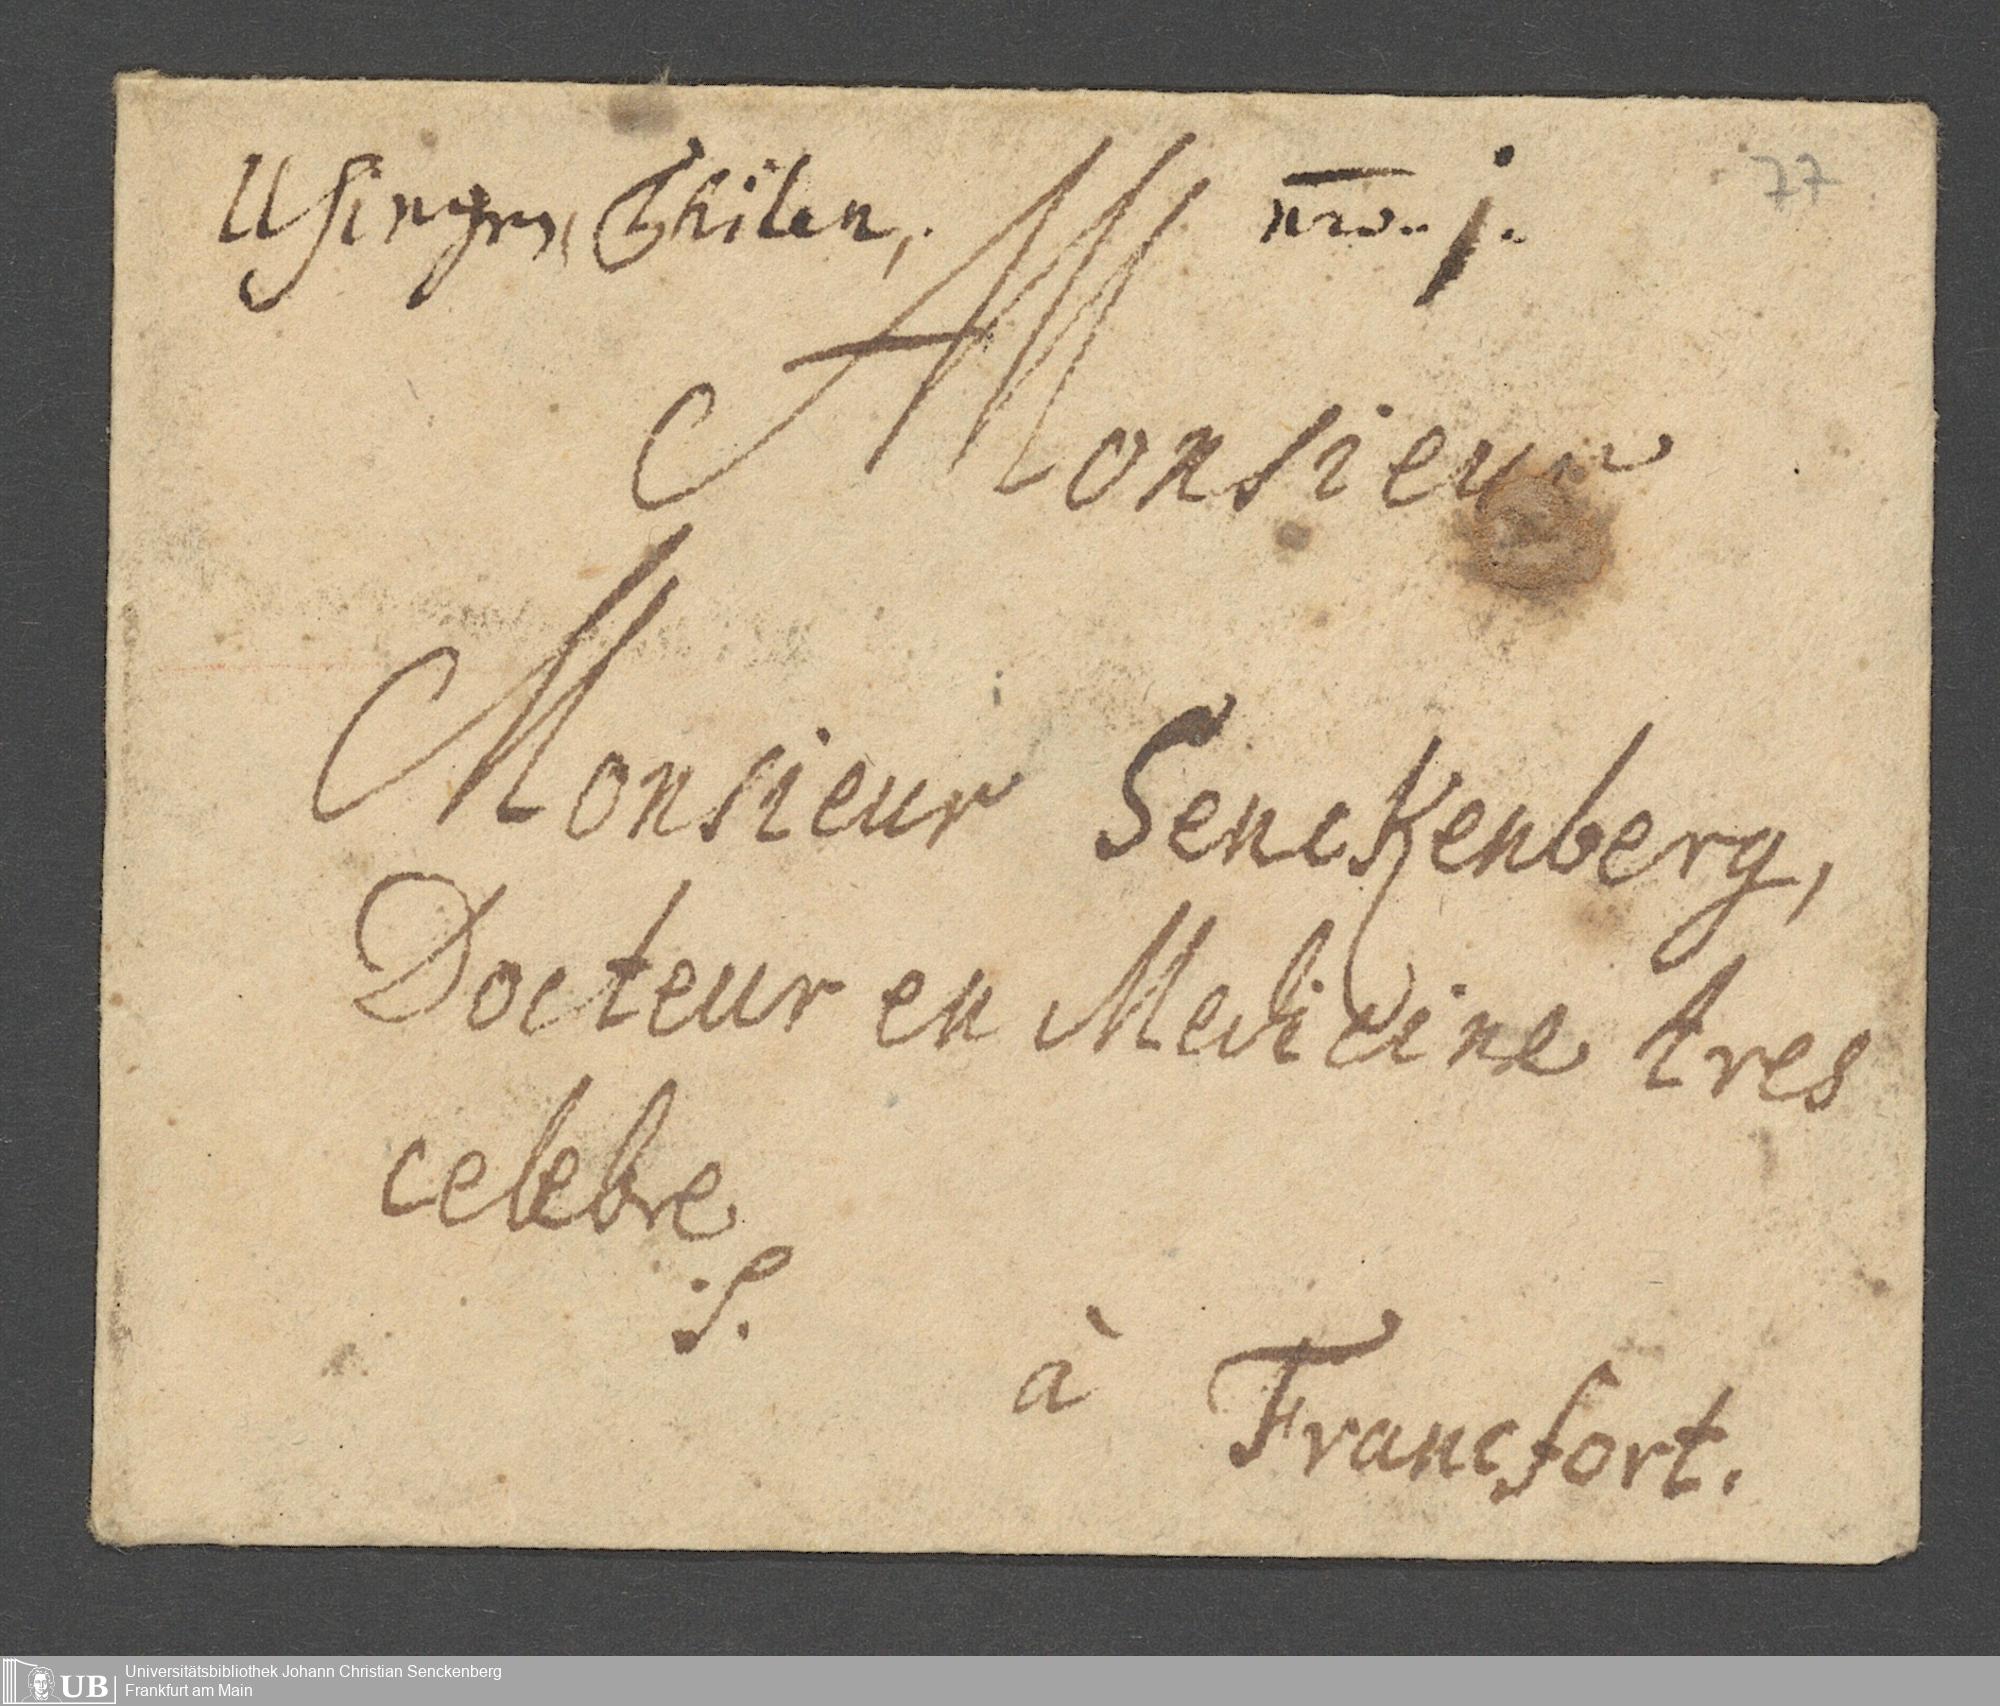 Usingen, Thilen, nro. j.
77
Monsieur
Monsieur Senckenberg,
Docteur en Medicine tres
celebre
S.
à Francfort.
UB Universitätsbibliothek Johann Christian Senckenberg
Frankfurt am Main